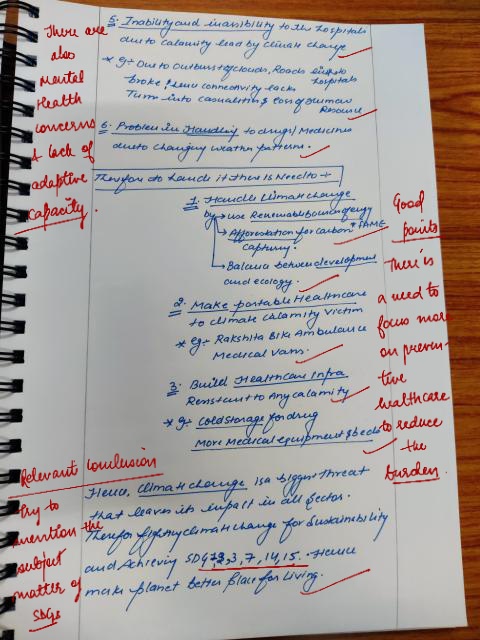 There are
also
Mental
Health
concerns
& lack of
adaptive
capacity.
5. Inability and inassibility to the hospitals
due to calamity lead by climate change
* eg:- Due to Outburst of clouds, Roads
broke & hence connectivity lacks hospitals
Turn into casualities & loss of human
Resource
6. Problem in Handling to drugs/Medicines
due to changing weather patterns.
Therefore to handle it there is Need to →
1. Handle Climate change
by → use Renewable sources of energy
→ Afforestation for carbon * FAME
capturing.
→ Balance between development
and ecology.
2. Make portable Healthcare
to climate calamity victim
* eg:- Rakshita Bike Ambulance
Medical Vans.
3. Build Healthcare Infra
Resistant to Any calamity
* eg:- Cold storage for drug
More Medical equipment & beds
Good
points
There is
a need to
focus more
on preven-
tive
healthcare
to reduce
the
burden.
Relevant conclusion
Try to
mention the
subject
matter of
SDGs
Hence, Climate change is a bigger threat
that leaves its impact in all sector.
Therefor fighting climate change for Sustainibility
and Achieving SDG 2, 3, 7, 14, 15. Hence
make planet better place for living.